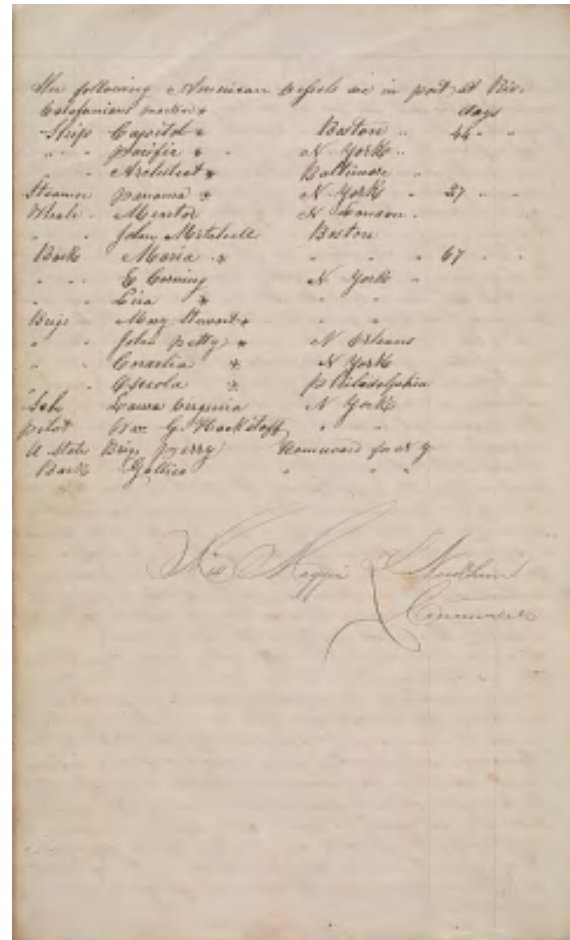 The following American Vessels are in port at Rio.
Calafonians marked * days
Ships Capitol * Boston " 44 " "
" " Pacific * " N York "
" Architect * Baltimore "
Steamer Panama * N York " 37 " "
Whale " Mentor N London "
" " John Boston
Bark Maria " * " " " 67 " "
" " E Corning N York "
" " Lira * " "
Brigs " Mary Stewart * " "
" " John Petty * N Orleans
" " Cornelia * N York
" " Osceola * Philadelphia
Sch Laura Virginia N York
Pilot Wm G. Hackstaff " "
U State Brig Perry Homeward for N Y
Bark " " "
Miss Maggie